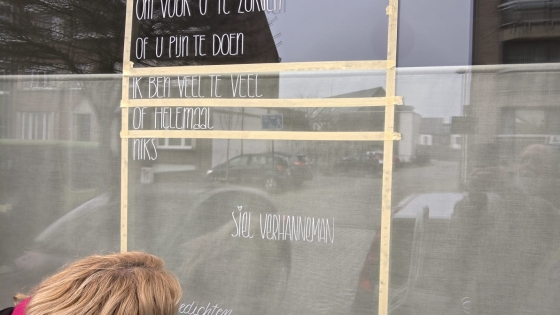 OM VOOR U TE ZORGEN
OF U PIJN TE DOEN
IK BEN VEEL TE VEEL
OF HELEMAAL
NIKS
SIEL VERHANNEMAN
edichten